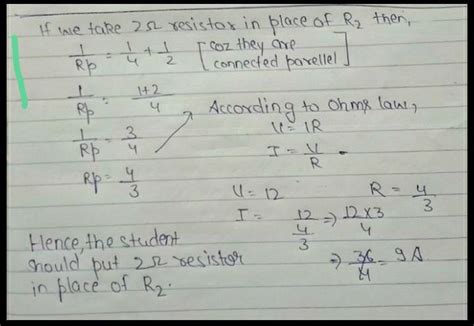 If we take 2Ω resistor in place of R₂ then,
1/Rp = 1/4 + 1/2 [coz they are connected parellel]
1/Rp = 1+2/4
According to Ohms law,
1/Rp = 3/4
V = IR
I = V/R
Rp = 4/3
V = 12 R = 4/3
I = 12/(4/3) ⇒ 12×3/4
⇒ 36/4 = 9A
Hence, the student
should put 2Ω resistor
in place of R₂.